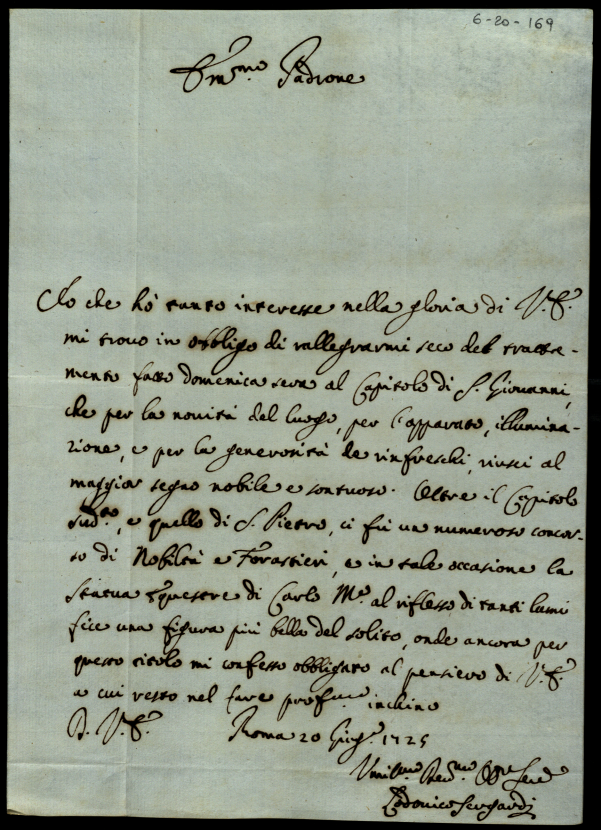 6-20-169
Em.mo Padrone
Io che hò tanto interesse nella gloria di V.E.
mi trovo in obbligo di rallegrarmi seco del tratte-
nimento fatto domenica sera al Capitolo di S. Giovanni,
che per la novità del luogo, per l'apparato, illumina-
zione, e per la generosità de rinfreschi, riuscì al
maggior segno nobile e sontuoso. Oltre il Capitolo
sud.to, e quello di S. Pietro, ci fu un numeroso concor-
so di Nobiltà e Forastieri, e in tale occasione la
statua Equestre di Carlo M.o al riflesso di tanti lumi
fece una figura più bella del solito, onde ancora per
questo titolo mi confesso obbligato al pensiero di V.E.
a cui resto nel fare prof.mo inchino
D. V.E. Roma 20 Giug.o 1725
Umil.mo Dev.mo Obb.mo Ser.e
Lodovico Sergardi